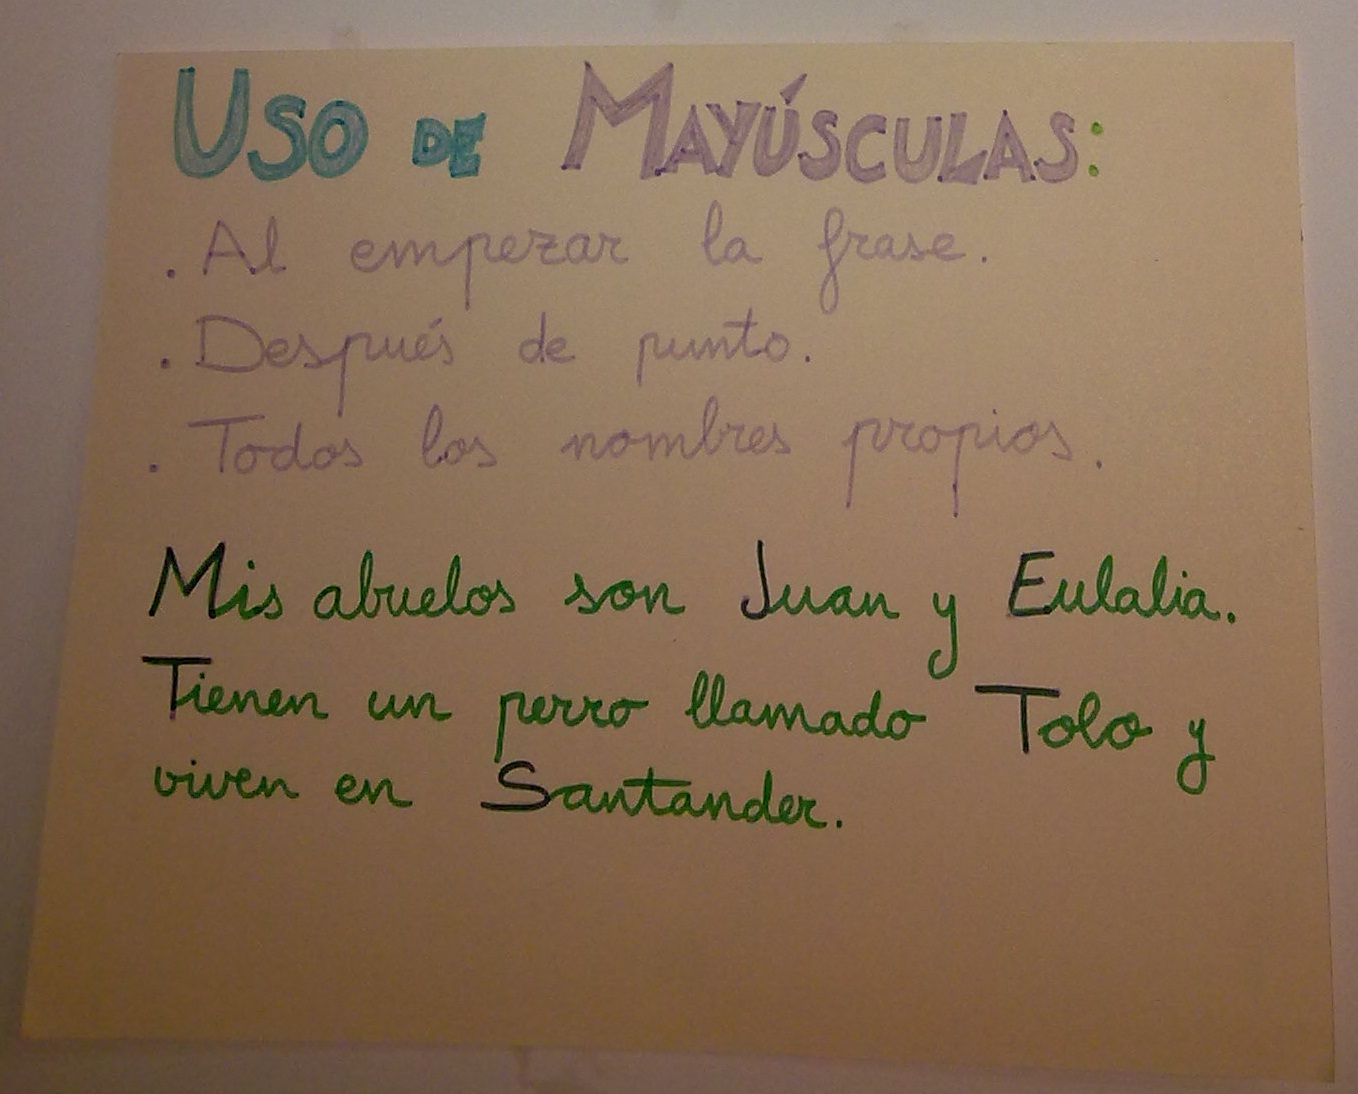 USO DE MAYÚSCULAS:
. Al empezar la frase.
. Después de punto.
. Todos los nombres propios.
Mis abuelos son Juan y Eulalia.
Tienen un perro llamado Tolo y
viven en Santander.